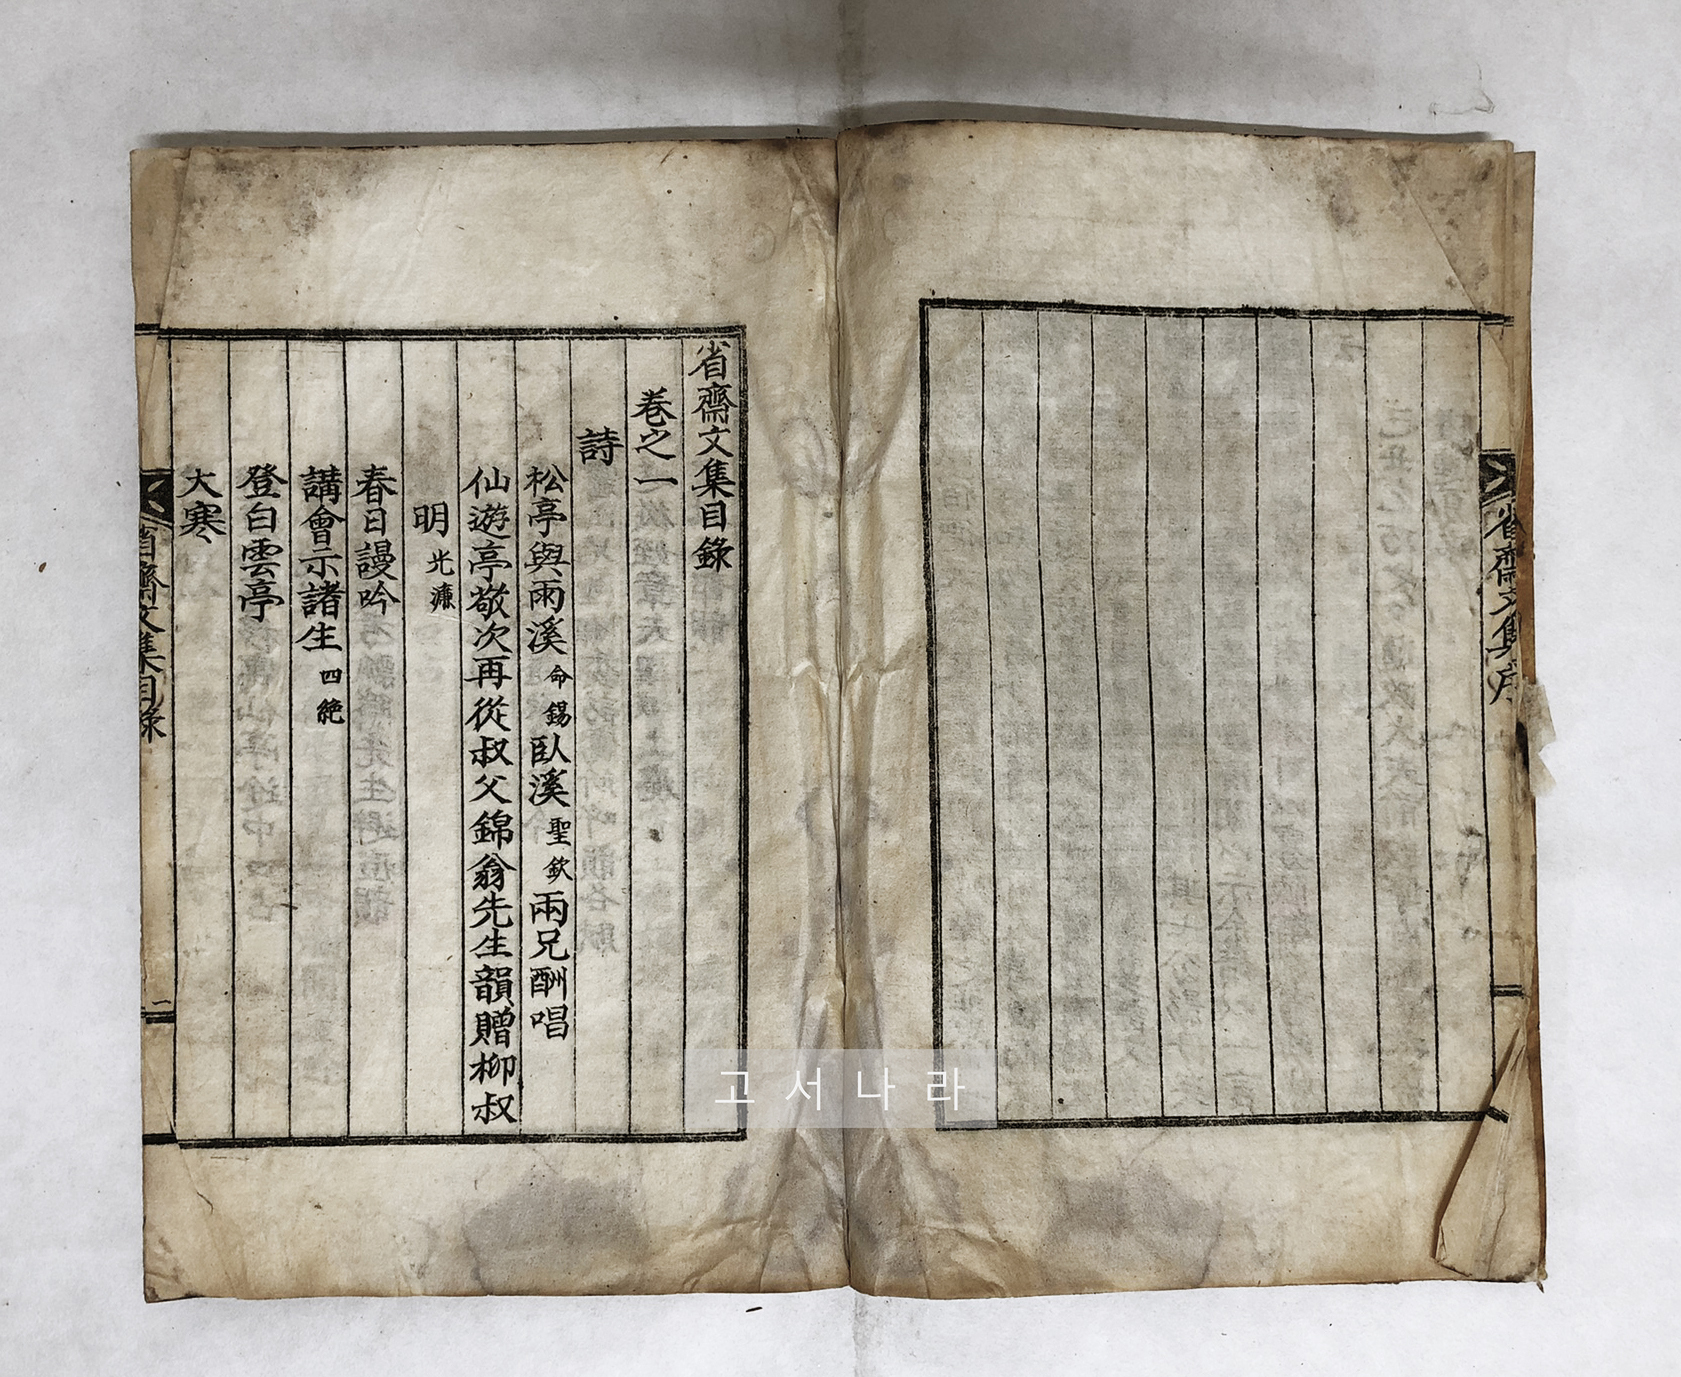 省齋文集序
省齋文集目錄
卷之一
詩
松亭與兩溪命錫臥溪聖欽兩兄酬唱
仙遊亭敬次再從叔父錦翁先生韻贈柳叔
明光濂
春日謾吟
講會示諸生四絶
登白雲亭
大寒
省齋文集目錄
一
고서나라